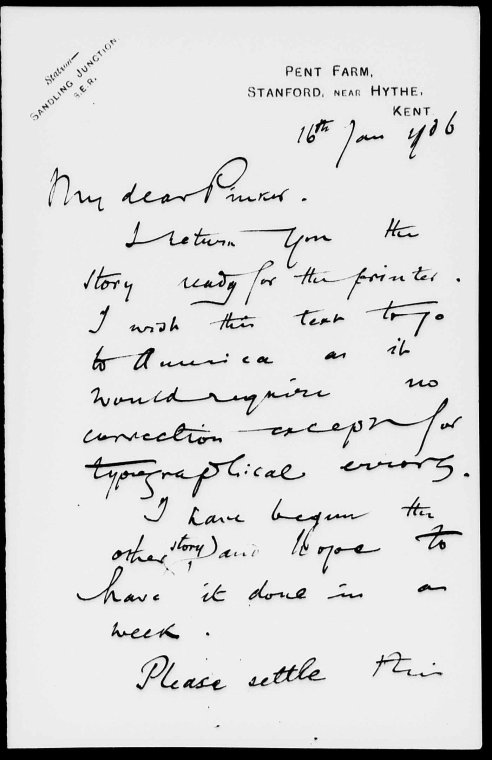 Station—
SANDLING JUNCTION
S.E.R.
PENT FARM,
STANFORD, NEAR HYTHE,
KENT
16th Jan 1906
My dear Pinker.
I return you the
story ready for the printer.
I wish this text to go
to America as it
would require no
correction except for
typographical errors.
I have begun the
other story) and hope to
have it done in a
week.
Please settle this